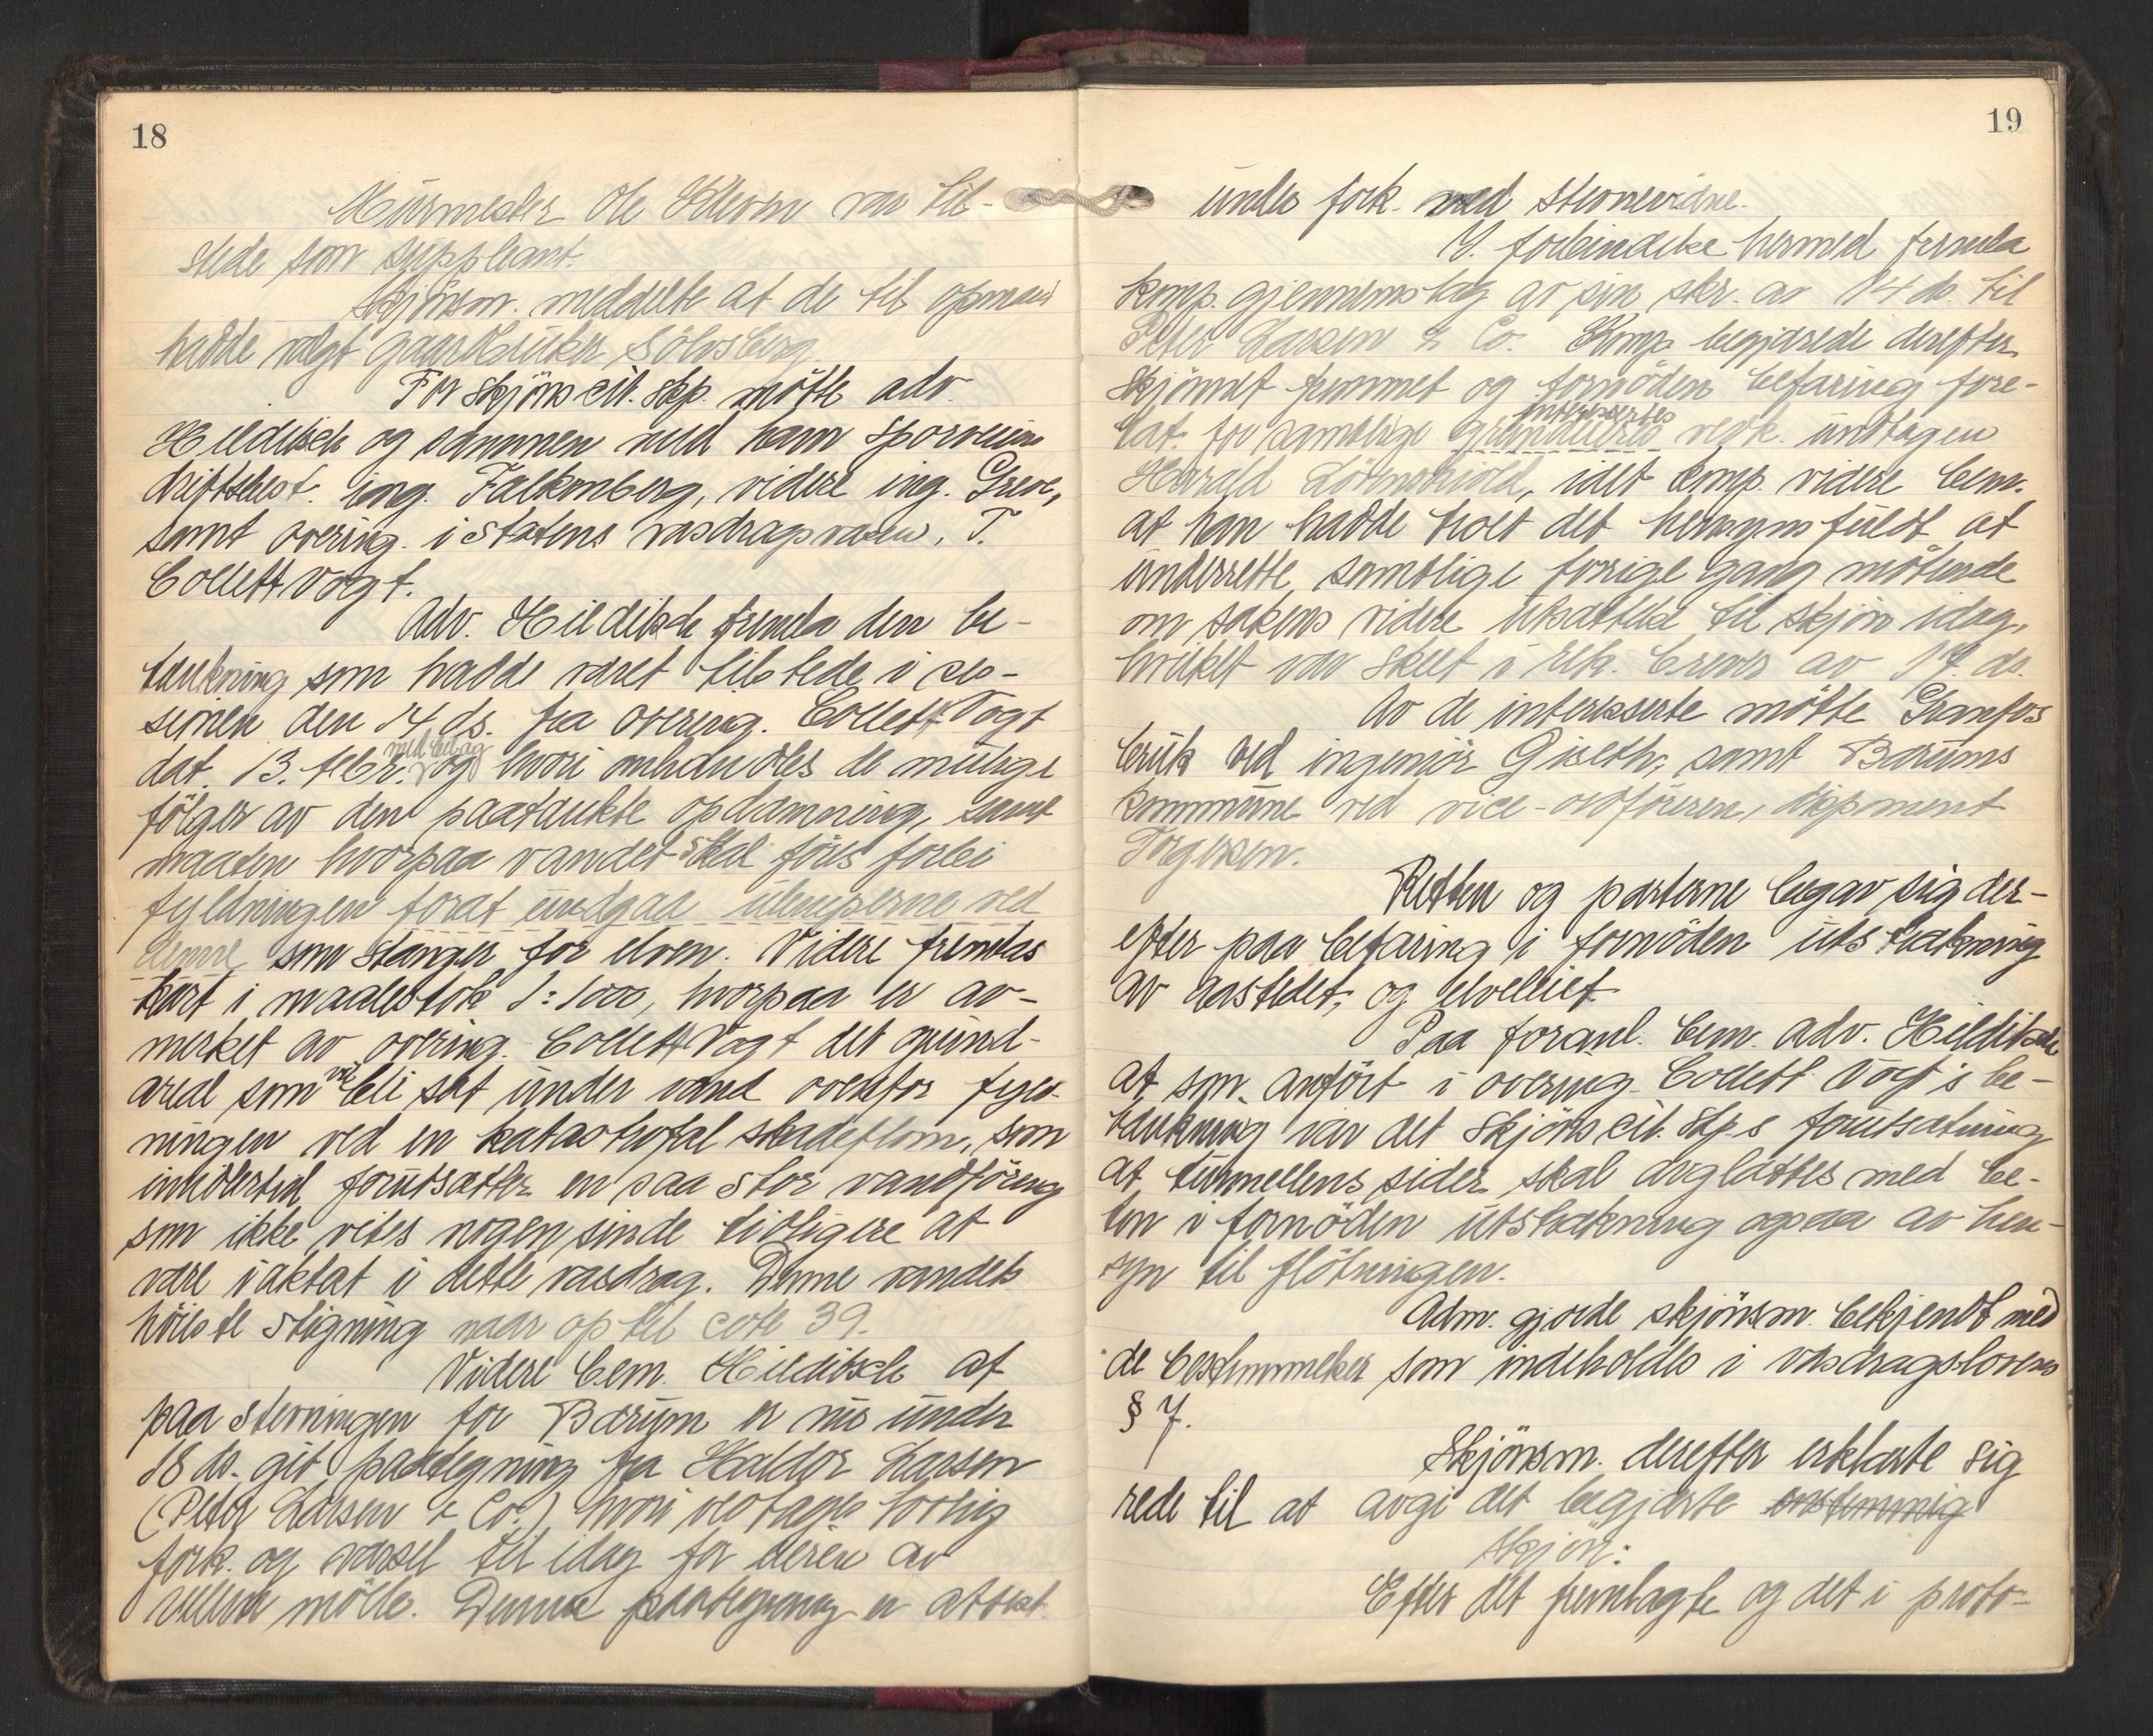 18
Mürmester Ole Kleven var til-
stede som süppleant.
Skjönsm. meddelte at de til opmand
hadde valgt gaardbrüker Sölvsberg.
For skjönscit. skp. mötte adv.
Hilditsch og sammen med ham sporveiens
driftsbest. ing. Falkenberg, videre ing. Greve,
samt overing. i Statens vasdragsvæsen, T.
Collett Vogt.
Adv. Hilditsch fremla den be-
tænkning som hadde været tilstede i ses-
sionen den 14 ds. fra overing. Collett Vogt
dat. 13. febr. med bilag og hvori omhandles de mülige
fölger av den paatænkte opdæmning, samt
maaten hvorpaa vandet skal föres forbi
fyldningen forat ündgaa ülemperne ved
denne som stænger for elven. Videre fremlas
kart i maalestok 1:1000, hvorpaa er av-
merket av overing. Collett Vogt det gründ-
areal som vil bli sat ünder vand ovenfor fyld-
ningen ved en katastrofal skadeflom, som
imidlertid forütsætter en saa stor vandföring
som ikke vites nogensinde tidligere at
være iaktat i dette vasdrag. Denne vandets
höieste stigning naar op til cote 39.
Videre bem. Hilditsch at
paa stevningen for Bærüm er nü ünder
18 ds. git paategning fra Haldor Larsen
(Peter Larsen & Co.) hvori vedtages lovlig
fork. og varsel til idag for deres av
Denne paategning er attest.
19
ünder fork. med stevnevidne.
I forbindelse hermed fremla
komp. gjennemslag av sin skr. av 14 ds. til
Peter Larsen & Co. Komp. begjærede derefter
skjönnet fremmet og fornöden befaring fore-
tat for samtlige gründeieres interessertes vedk. ündtagen
Harald Lövenskiold, idet komp. videre bem.
at han hadde troet det hensynsfüldt at
ünderrette samtlige forrige gang mötende
om sakens videre ütsættelse til skjön idag,
hvilket var skeet i rek. brever av 17. ds.
Av de interesserte mötte Granfos
brük ved ingeniör Giseth, samt Bærüms
kommüne ved vice-ordföreren, disponent
Torgersen.
Retten og parterne begav sig der-
efter paa befaring i fornöden ütstrækning
av aastedet, og elveleiet.
Paa foranl. bem. adv. Hilditsch
at som anfört i overing. Collett Vogt's be-
tænkning var det skjönscit. skp.s forütsætning
at tünnellens sider skal avglattes med be-
ton i fornöden ütstrækning ogsaa av hen-
syn til flötningen.
Adm. gjorde skjönsm. bekjendt med
de bestemmelser som indeholdes i vasdragslovens
§ 7.
Skjönsm. derefter erklærte sig
rede til at avgi det begjærte enstemmig
skjön:
Efter det fremlagte og det i proto-